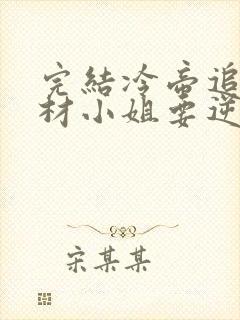 完結冷帝追
材小姐要逆
宋某某